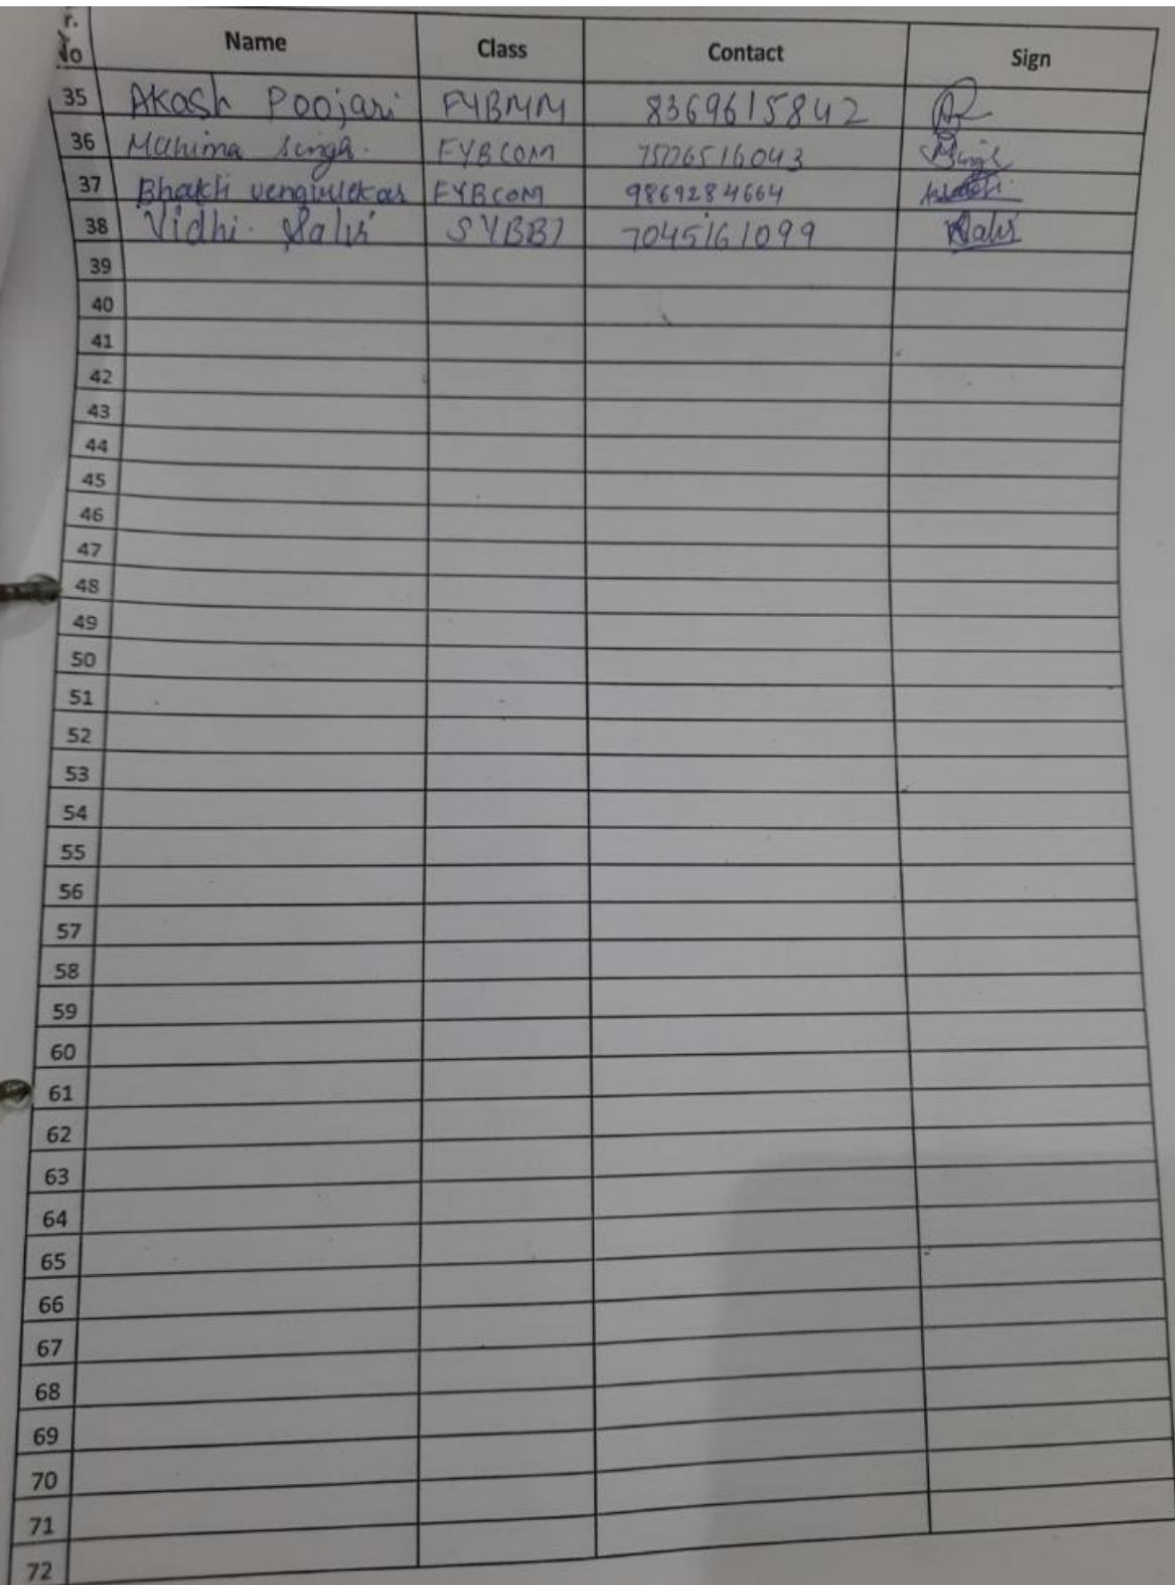 Sr. No Name Class Contact Sign
35 Akash Poojari FYBMM 8369615842
36 Mahima Singh. FYBCOM Singh
37 Bhakti vengurlekar FYBCOM 9869284664
38 Vidhi. Salvi SYBBI 7045161099 Salvi
39
40
41
42
43
44
45
46
47
48
49
50
51
52
53
54
55
56
57
58
59
60
61
62
63
64
65
66
67
68
69
70
71
72